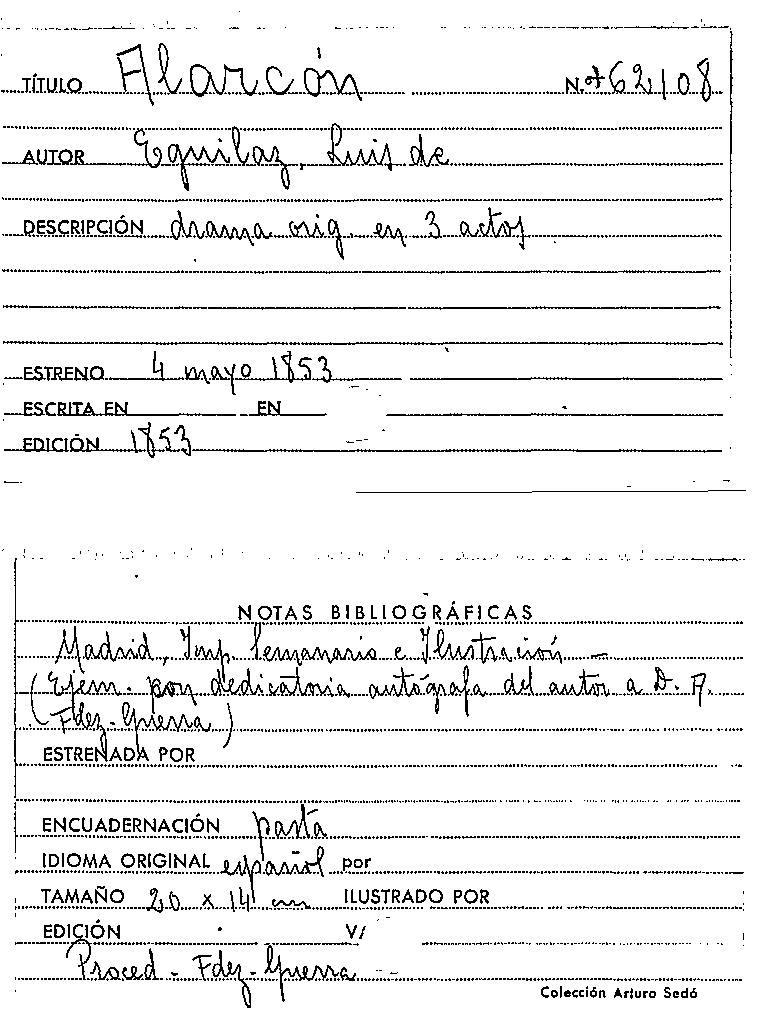 TÍTULO Alarcón N.º 62108
AUTOR Eguilaz, Luis de
DESCRIPCIÓN drama orig. en 3 actos
ESTRENO 4 mayo 1853
ESCRITA EN EN
EDICIÓN 1853
NOTAS BIBLIOGRÁFICAS
Madrid, Imp. Semanario e Ilustración -
(Ejem. con dedicatoria autógrafa del autor a D. A.
Fdez-Guerra)
ESTRENADA POR
ENCUADERNACIÓN pasta
IDIOMA ORIGINAL español por
TAMAÑO 20 x 14 cm ILUSTRADO POR
EDICIÓN V/
Proced - Fdez-Guerra
Colección Arturo Sedó